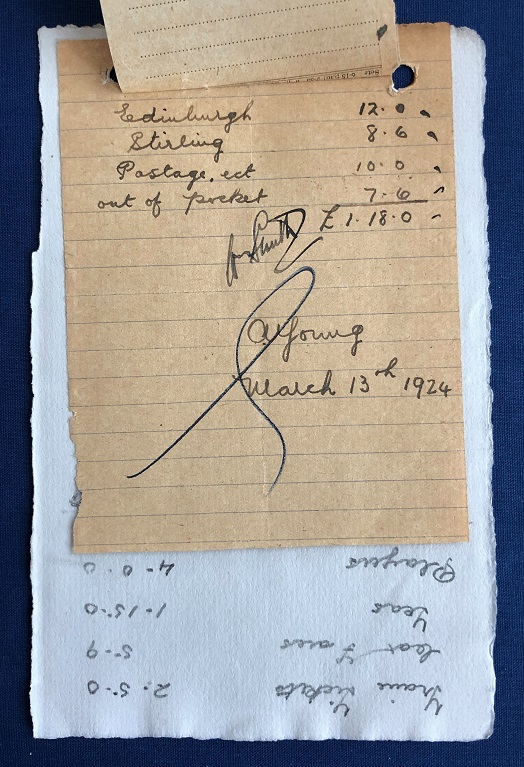 Edinburgh 12.0
Stirling 8.6
Postage. ect 10.0
out of pocket 7.6
£1.18.0
Smith
A Young
March 13th 1924
Train Tickets 2.5.0
Car Fares 5.9
Teas 1.15.0
Players 4.0.0